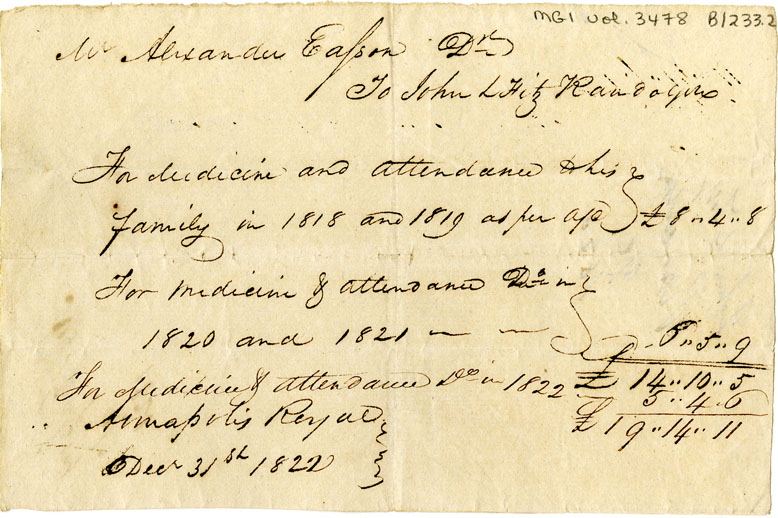 MG1 vol. 3478 B/233.2
Mr Alexander Easson Dr
To John L Fitz Randolph
For Medicine and attendance & his
family in 1818 and 1819 as per £ 8 " 4 " 8
For Medicine & attendance Do in
1820 and 1821 — — 6 " 5 " 9
£ 14 " 10 " 5
For Medicine & attendance Do in 1822 5 " 4 " 6
Annapolis Royal £ 19 " 14 " 11
Decr 31st 1822